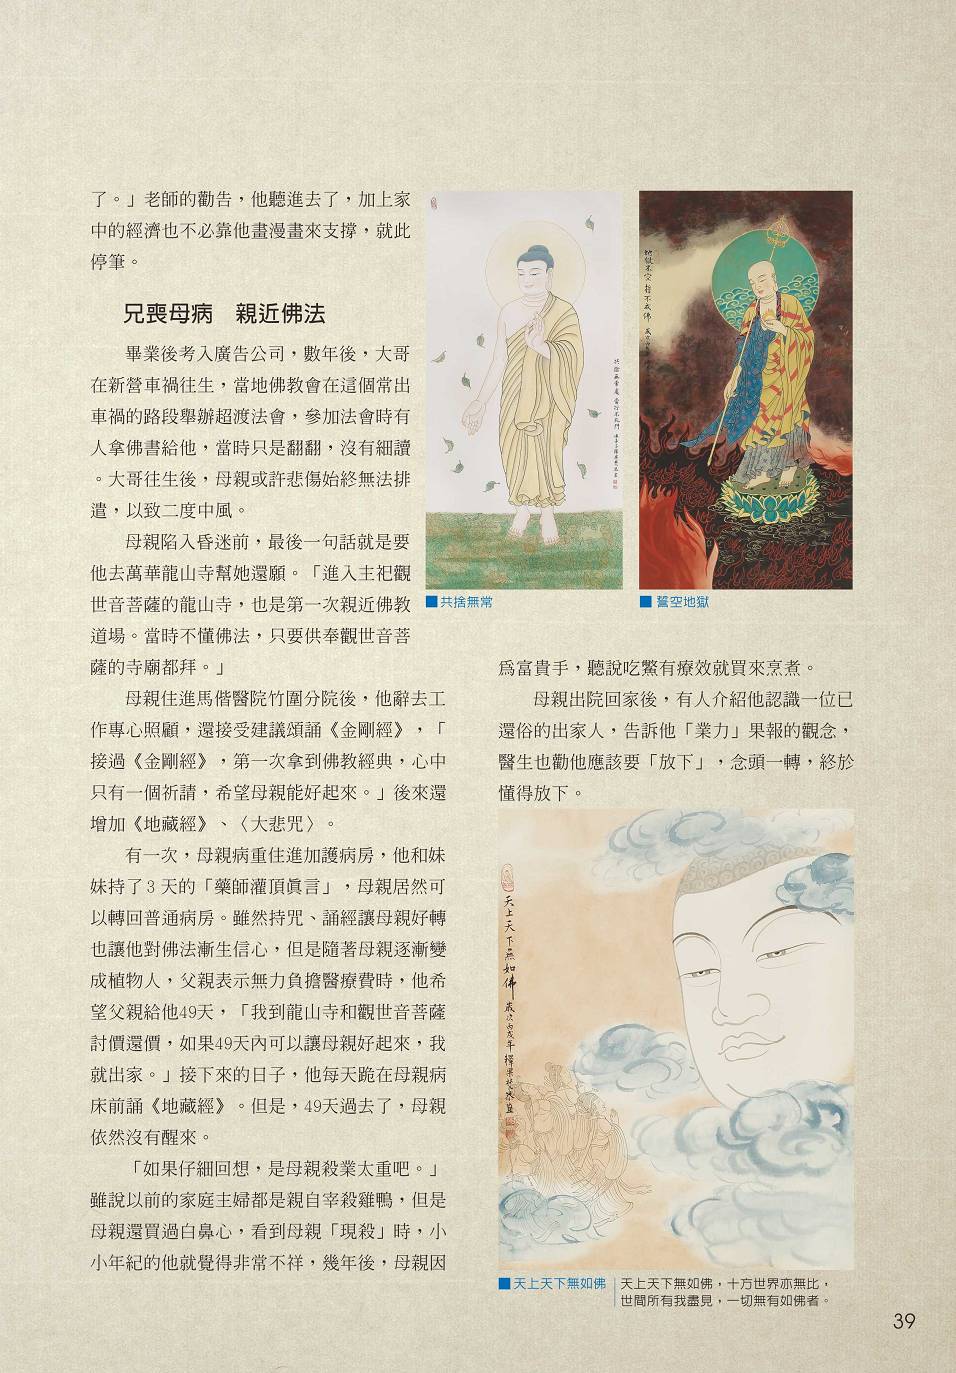 了。」老師的勸告，他聽進去了，加上家
中的經濟也不必靠他畫漫畫來支撐，就此
停筆。
兄喪母病　親近佛法
畢業後考入廣告公司，數年後，大哥
在新營車禍往生，當地佛教會在這個常出
車禍的路段舉辦超渡法會，參加法會時有
人拿佛書給他，當時只是翻翻，沒有細讀
。大哥往生後，母親或許悲傷始終無法排
遣，以致二度中風。
母親陷入昏迷前，最後一句話就是要
他去萬華龍山寺幫她還願。「進入主祀觀
世音菩薩的龍山寺，也是第一次親近佛教
道場。當時不懂佛法，只要供奉觀世音菩
薩的寺廟都拜。」
母親住進馬偕醫院竹圍分院後，他辭去工
作專心照顧，還接受建議頌誦《金剛經》，「
接過《金剛經》，第一次拿到佛教經典，心中
只有一個祈請，希望母親能好起來。」後來還
增加《地藏經》、〈大悲咒〉。
有一次，母親病重住進加護病房，他和妹
妹持了3天的「藥師灌頂真言」，母親居然可
以轉回普通病房。雖然持咒、誦經讓母親好轉
也讓他對佛法漸生信心，但是隨著母親逐漸變
成植物人，父親表示無力負擔醫療費時，他希
望父親給他49天，「我到龍山寺和觀世音菩薩
討價還價，如果49天內可以讓母親好起來，我
就出家。」接下來的日子，他每天跪在母親病
床前誦《地藏經》。但是，49天過去了，母親
依然沒有醒來。
「如果仔細回想，是母親殺業太重吧。」
雖說以前的家庭主婦都是親自宰殺雞鴨，但是
母親還買過白鼻心，看到母親「現殺」時，小
小年紀的他就覺得非常不祥，幾年後，母親因
■共捨無常
地獄不空誓不成佛
■誓空地獄
為富貴手，聽說吃鱉有療效就買來烹煮。
母親出院回家後，有人介紹他認識一位已
還俗的出家人，告訴他「業力」果報的觀念，
醫生也勸他應該要「放下」，念頭一轉，終於
懂得放下。
天上天下無如佛 歲次丙戌年
■天上天下無如佛
天上天下無如佛，十方世界亦無比，
世間所有我盡見，一切無有如佛者。
39